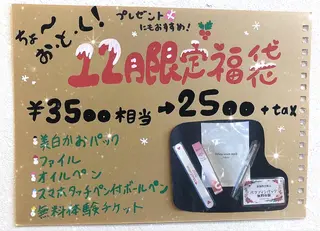 ちょ〜お・と・し!
プレゼント
にもおすすめ!
12月限定福袋
¥3500相当→2500+tax
美白かおパック
ファイル
オイルペン
スマホタッチペン付ボールペン
無料体験チケット